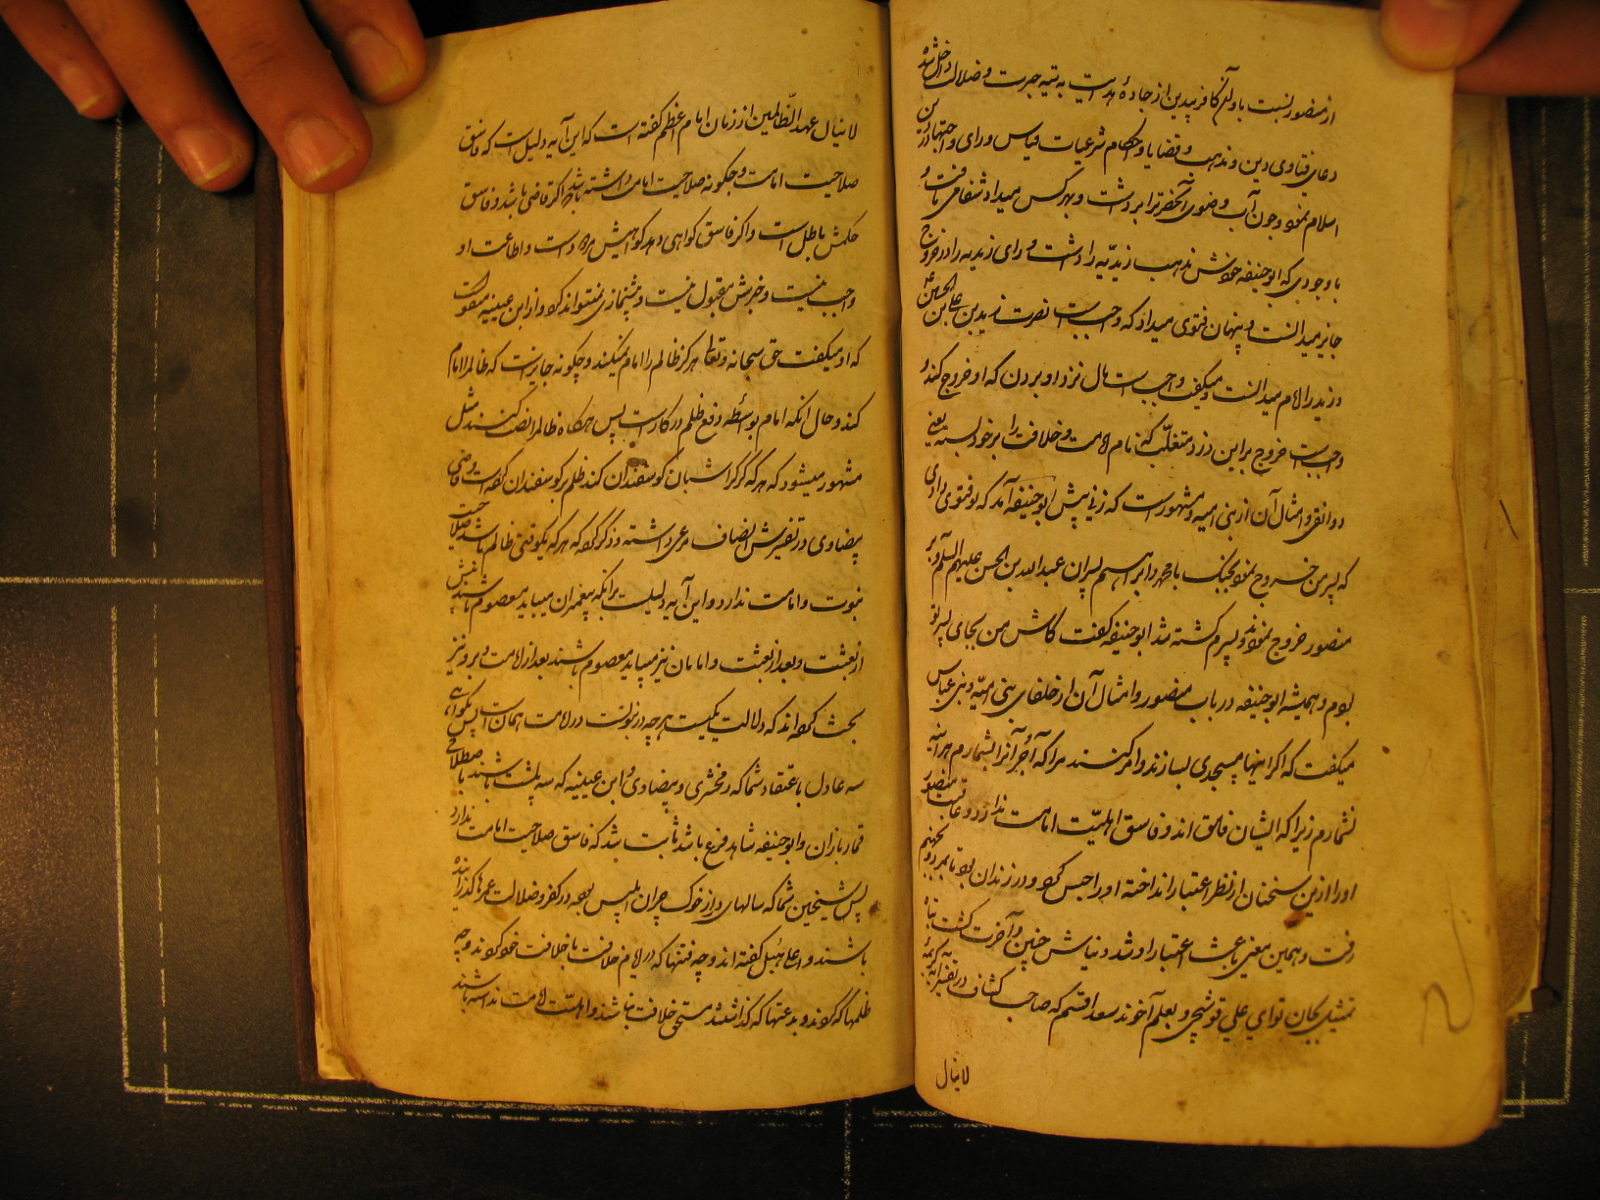 از منصور نسبت باو آن کافر بیدین از جادهٔ هدایت به تیه حیرت و ضلالت داخل شده
دعای فتاوی دین و مذهب و قضایا و احکام شرعیات قیاس و رای و اجتهاد در دین
اسلام نمود و چون آب وضوی آنحضرترا برداشت و بهر کس میداد شفا می یافت و
با وجودی که ابو حنیفه خودش مذهب زیدیّه را داشت و رای زیدیه را در خروج
جایز میدانست و پنهان فتوی میداد که واجبست نصرت زید بن علی بن الحسین ع
و زید را امام میدانست و میگفت واجبست مال نزد او بردن که او خروج کند و
واجبست خروج بر این دزد متغلّب که نام امامت و خلافت را بر خود بسته یعنی
دوانقی و امثال آن از بنی امیه و مشهورست که زنی پیش ابو حنیفه آمد که تو فتوی دادی
که پسر من خروج نمود بجنگ با محمد و ابراهیم پسران عبد الله بن الحسن علیهم السلام و بر
منصور خروج نمودند و پسرم کشته شد ابو حنیفه گفت کاش من بجای پسر تو
بودم و همیشه ابو حنیفه در باب منصور و امثال آن از خلفای بنی امیّه و بنی عباس
میگفت که اگر اینها مسجدی بسازند و امر کنند مرا که آجُر آنرا بشمارم هر آینه
نشمارم زیرا که ایشان فاسق اند و فاسق اهلیّت امامت ندارد و عاقبت منصور
او را ازین سخنان از نظر اعتبار انداخته او را حبس کرد و در زندان بود تا بمرد و بجهنم
رفت و همین معنی باعث اعتبار او شد دنیاش چنین و آخرت گشت تباه
تمثیل کان توای علی قوشچی و بعلم آخوند سعد اقسم که صاحب کشاف در تفسیر آیه کریمهٔ
لاینال
لاینال عهد الظّالمین از زمان امام اعظم گفته است که این آیه دلیل است که فاسق
صلاحیت امامت و چگونه صلاحیت امامی داشته باشد اگر قاضی باشد و فاسق
حکمش باطل است و اگر فاسق گواهی دهد گواهیش مردودست و اطاعت او
واجب نیست و خبرش مقبول نیست و پیشنمازی نمیتواند کرد و از ابن عیینیه منقولست
که او میگفت حق سبحانه و تعالی هرگز ظالم را امام نمیکند و چگونه جایز است که ظالم را امام
کند و حال آنکه امام بواسطه دفع ظلم در کارست پس هرگاه ظالم را نصب کنند مثل
مشهور میشود که هر که گرگ را شبان گوسفندان کند ظلم بر گوسفندان کرده است و قاضی
بیضاوی در تفسیرش انصاف مرعی داشته و ذکر کرده که هر که یکوقتی ظالم باشد صلاحیت
نبوت و امامت ندارد و این آیه دلیلست برانکه پیغمبران میباید معصوم باشند پیش
از بعثت و بعد از بعثت و امامان نیز میباید معصوم باشند بعد از امامت و برو نیز
بحث کرده اند که دلالت یکیست هر چه در نبوتست در امامت همان است پس بگواهی
سه عادل باعتقاد شما که زمخشری و بیضاوی و ابن عیینیه که سه پشت باشند باصطلاح
قماربازان و ابو حنیفه شاهد فرع باشد ثابت شد که فاسق صلاحیت امامت ندارد
پس شیخین شما که سالهای دراز خوک چران ابلیس بوده در کفر و ضلالت عمرها گذرانیده
باشند و اعلی هبل گفته اند و چه فتنها که در ایام خلافت با خلافت خود کردند و چه
ظلمها که کردند و بدعتها که گذاشتند مستحق خلافت نباشند و اهلیت امامت نداشته باشند